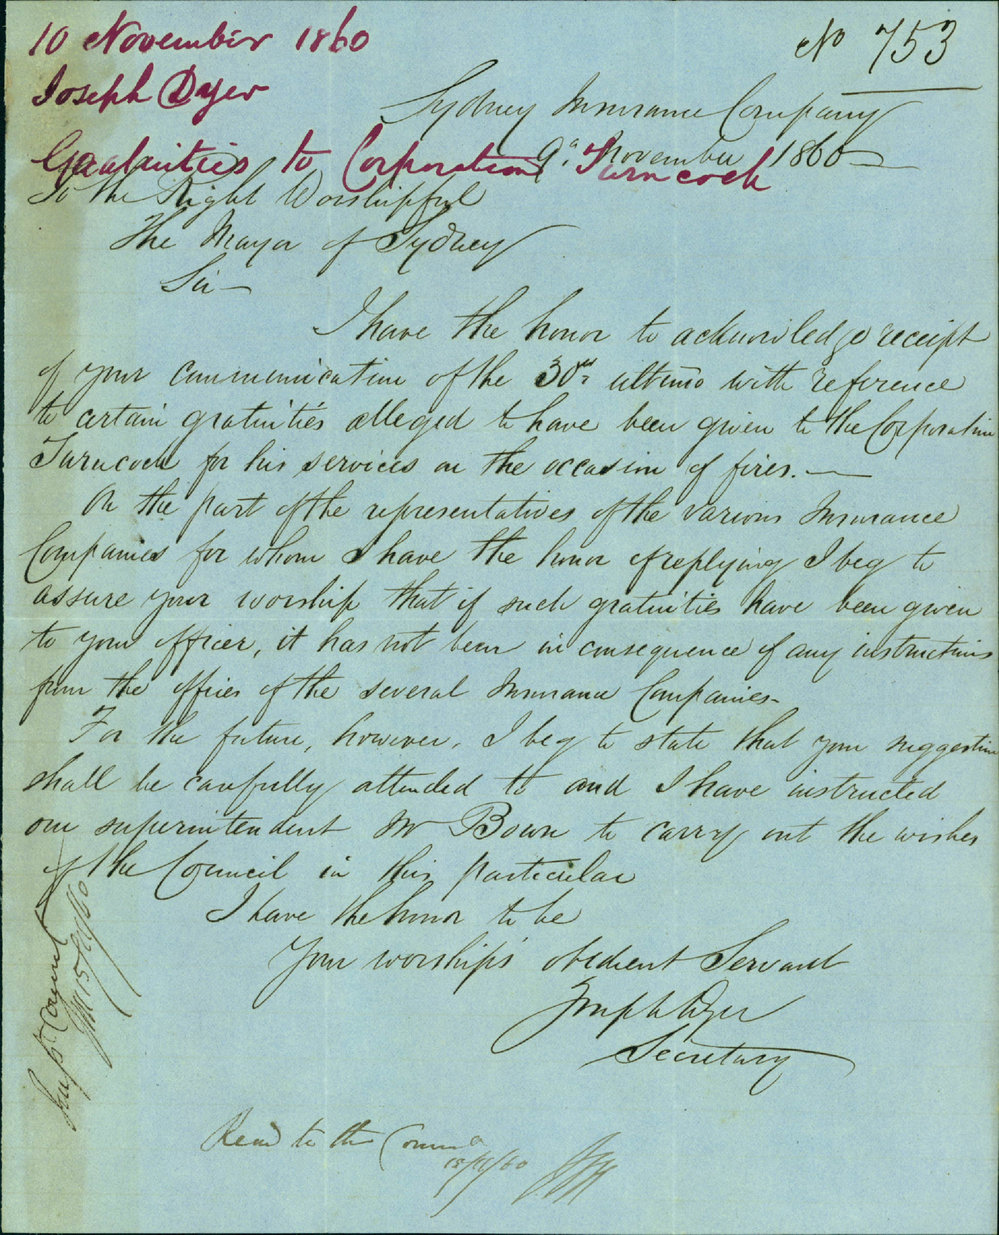 10 November 1860
No 753
Joseph Dyer
Sydney Insurance Company
Gratuities to Corporation Turncock
9th November 1860
To the Right Worshipful
The Mayor of Sydney
Sir
I have the honor to acknowledge receipt
of your communication of the 30th ultimo with reference
to certain gratuities alleged to have been given to the Corporation
Turncock for his services on the occasion of fires.
On the part of the representatives of the various Insurance
Companies for whom I have the honor of replying I beg to
assure your worship that if such gratuities have been given
to your officer, it has not been in consequence of any instructions
from the offices of the several Insurance Companies.
For the future, however, I beg to state that your suggestion
shall be carefully attended to and I have instructed
our superintendent Mr Bown to carry out the wishes
of the Council in this particular
I have the honor to be
Your worship's obedient Servant
Joseph Dyer
Secretary
Read to the Council
15/11/60
15/11/60